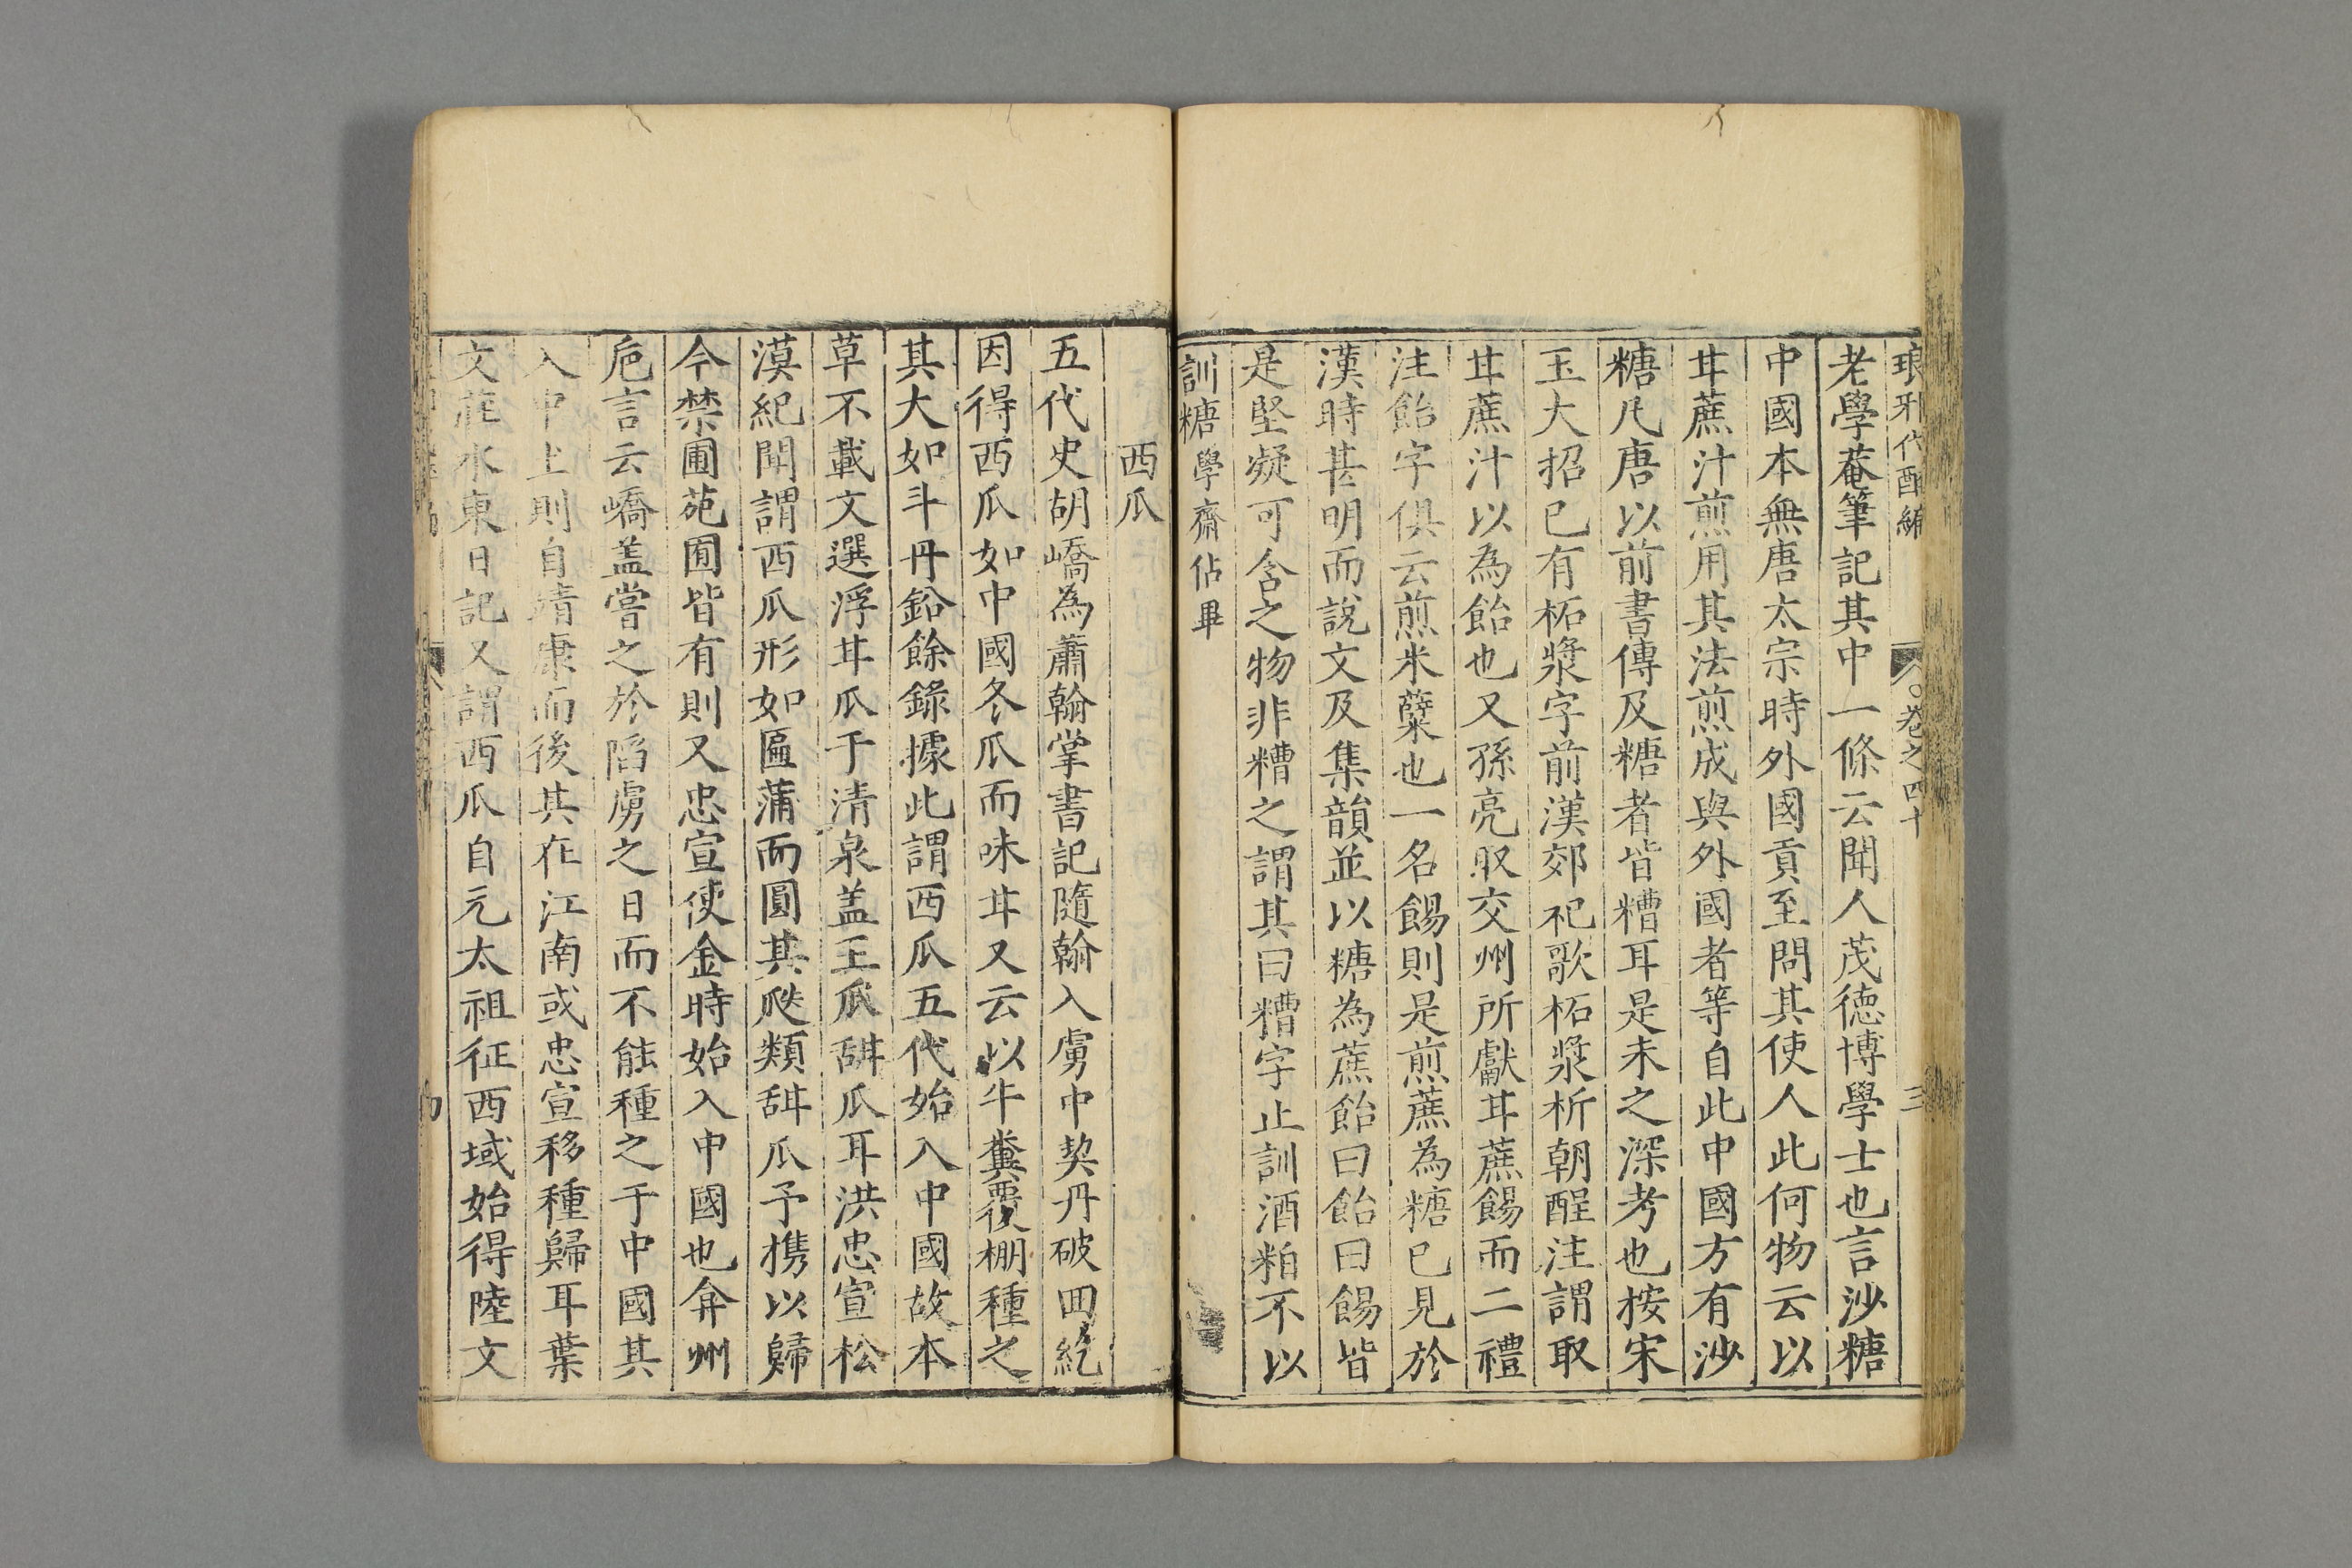 琅邪代醉編 卷之四十 三
老學菴筆記其中一條云聞人茂德博學士也言沙糖
中國本無唐太宗時外國貢至問其使人此何物云以
甘蔗汁煎用其法煎成與外國者等自此中國方有沙
糖凡唐以前書傳及糖者皆糟耳是未之深考也按宋
玉大招已有柘漿字前漢郊祀歌柘漿析朝酲注謂取
甘蔗汁以為飴也又孫亮取交州所獻甘蔗餳而二禮
注飴字俱云煎米蘗也一名餳則是煎蔗為糖已見於
漢時甚明而說文及集韻並以糖為蔗飴曰飴曰餳皆
是堅凝可含之物非糟之謂其曰糟字止訓酒粕不以
訓糖學齋佔畢
西瓜
五代史胡嶠為蕭翰掌書記隨翰入虜中契丹破回紇
因得西瓜如中國冬瓜而味甘又云以牛糞覆棚種之
其大如斗丹鉛餘錄據此謂西瓜五代始入中國故本
草不載文選浮甘瓜于清泉盖王瓜甜瓜耳洪忠宣松
漠紀聞謂西瓜形如匾蒲而圓其瓞類甜瓜予攜以歸
今禁圃苑囿皆有則又忠宣使金時始入中國也弇州
巵言云嶠盖嘗之於陷虜之日而不能種之于中國其
入中土則自靖康而後其在江南或忠宣移種歸耳葉
文莊水東日記又謂西瓜自元太祖征西域始得陸文